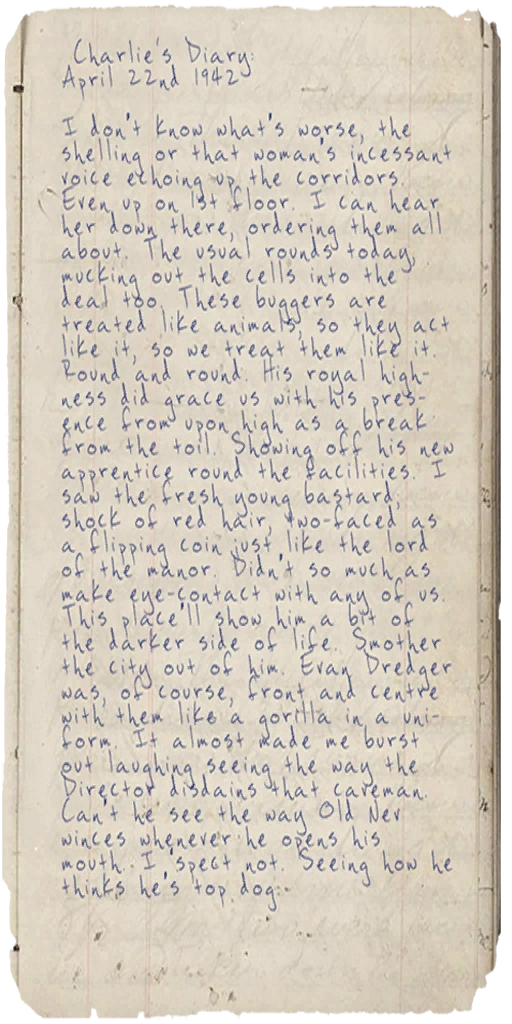 Charlie's Diary:
April 22nd 1942
I don't know what's worse, the
shelling or that woman's incessant
voice echoing up the corridors.
Even up on 1st floor. I can hear
her down there, ordering them all
about. The usual rounds today,
mucking out the cells into the
deal too. These buggers are
treated like animals, so they act
like it, so we treat them like it.
Round and round. His royal high-
ness did grace us with his pres-
ence from upon high as a break
from the toil. Showing off his new
apprentice round the facilities. I
saw the fresh young bastard,
shock of red hair, two-faced as
a flipping coin just like the lord
of the manor. Didn't so much as
make eye-contact with any of us.
This place'll show him a bit of
the darker side of life. Smother
the city out of him. Evan Dredger
was, of course, front and centre
with them like a gorilla in a uni-
form. It almost made me burst
out laughing seeing the way the
Director disdains that caveman.
Can't he see the way Old Nev
winces whenever he opens his
mouth. I 'spect not. Seeing how he
thinks he's top dog.